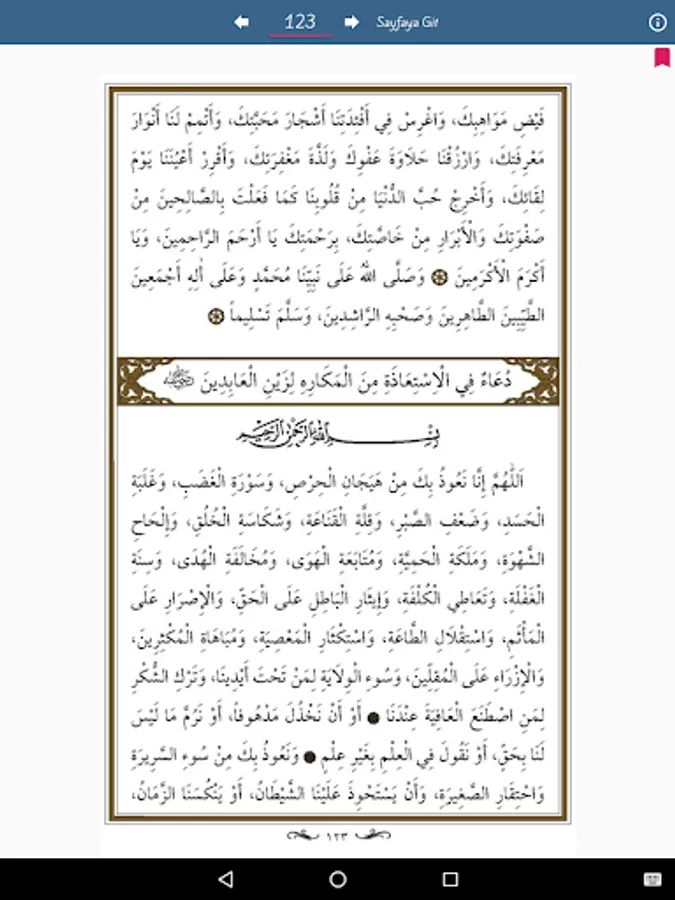 123
Sayfaya Git
فَيْضِ مَوَاهِبِكَ، وَاغْرِسْ فِي أَفْئِدَتِنَا أَشْجَارَ مَحَبَّتِكَ، وَأَتْمِمْ لَنَا أَنْوَارَ
مَعْرِفَتِكَ، وَارْزُقْنَا حَلَاوَةَ عَفْوِكَ وَلَذَّةَ مَغْفِرَتِكَ، وَأَقْرِرْ أَعْيُنَنَا يَوْمَ
لِقَائِكَ، وَأَخْرِجْ حُبَّ الدُّنْيَا مِنْ قُلُوبِنَا كَمَا فَعَلْتَ بِالصَّالِحِينَ مِنْ
صَفْوَتِكَ وَالْأَبْرَارِ مِنْ خَاصَّتِكَ، بِرَحْمَتِكَ يَا أَرْحَمَ الرَّاحِمِينَ، وَيَا
أَكْرَمَ الْأَكْرَمِينَ وَصَلَّى اللهُ عَلَى نَبِيِّنَا مُحَمَّدٍ وَعَلَى اٰلِهِ أَجْمَعِينَ
الطَّيِّبِينَ الطَّاهِرِينَ وَصَحْبِهِ الرَّاشِدِينَ، وَسَلَّمَ تَسْلِيماً
دُعَاءٌ فِي الْاِسْتِعَاذَةِ مِنَ الْمَكَارِهِ لِزَيْنِ الْعَابِدِينَ
بِسْمِ اللهِ الرَّحْمٰنِ الرَّحِيمِ
اَللّٰهُمَّ إِنَّا نَعُوذُ بِكَ مِنْ هَيَجَانِ الْحِرْصِ، وَسَوْرَةِ الْغَضَبِ، وَغَلَبَةِ
الْحَسَدِ، وَضَعْفِ الصَّبْرِ، وَقِلَّةِ الْقَنَاعَةِ، وَشَكَاسَةِ الْخُلُقِ، وَإِلْحَاحِ
الشَّهْوَةِ، وَمَلَكَةِ الْحَمِيَّةِ، وَمُتَابَعَةِ الْهَوَى، وَمُخَالَفَةِ الْهُدَى، وَسِنَةِ
الْغَفْلَةِ، وَتَعَاطِي الْكُلْفَةِ، وَإِيثَارِ الْبَاطِلِ عَلَى الْحَقِّ، وَالْإِصْرَارِ عَلَى
الْمَأْثَمِ، وَاسْتِقْلَالِ الطَّاعَةِ، وَاسْتِكْثَارِ الْمَعْصِيَةِ، وَمُبَاهَاةِ الْمُكْثِرِينَ،
وَالْإِزْرَاءِ عَلَى الْمُقِلِّينَ، وَسُوءِ الْوِلَايَةِ لِمَنْ تَحْتَ أَيْدِينَا، وَتَرْكِ الشُّكْرِ
لِمَنِ اصْطَنَعَ الْعَافِيَةَ عِنْدَنَا ● أَوْ أَنْ نَخْذُلَ مَدْهُوفاً، أَوْ نَرُمَّ مَا لَيْسَ
لَنَا بِحَقٍّ، أَوْ نَقُولَ فِي الْعِلْمِ بِغَيْرِ عِلْمٍ ● وَنَعُوذُ بِكَ مِنْ سُوءِ السَّرِيرَةِ
وَاحْتِقَارِ الصَّغِيرَةِ، وَأَنْ يَسْتَحْوِذَ عَلَيْنَا الشَّيْطَانُ، أَوْ يَنْكُسَنَا الزَّمَانُ،
١٢٣